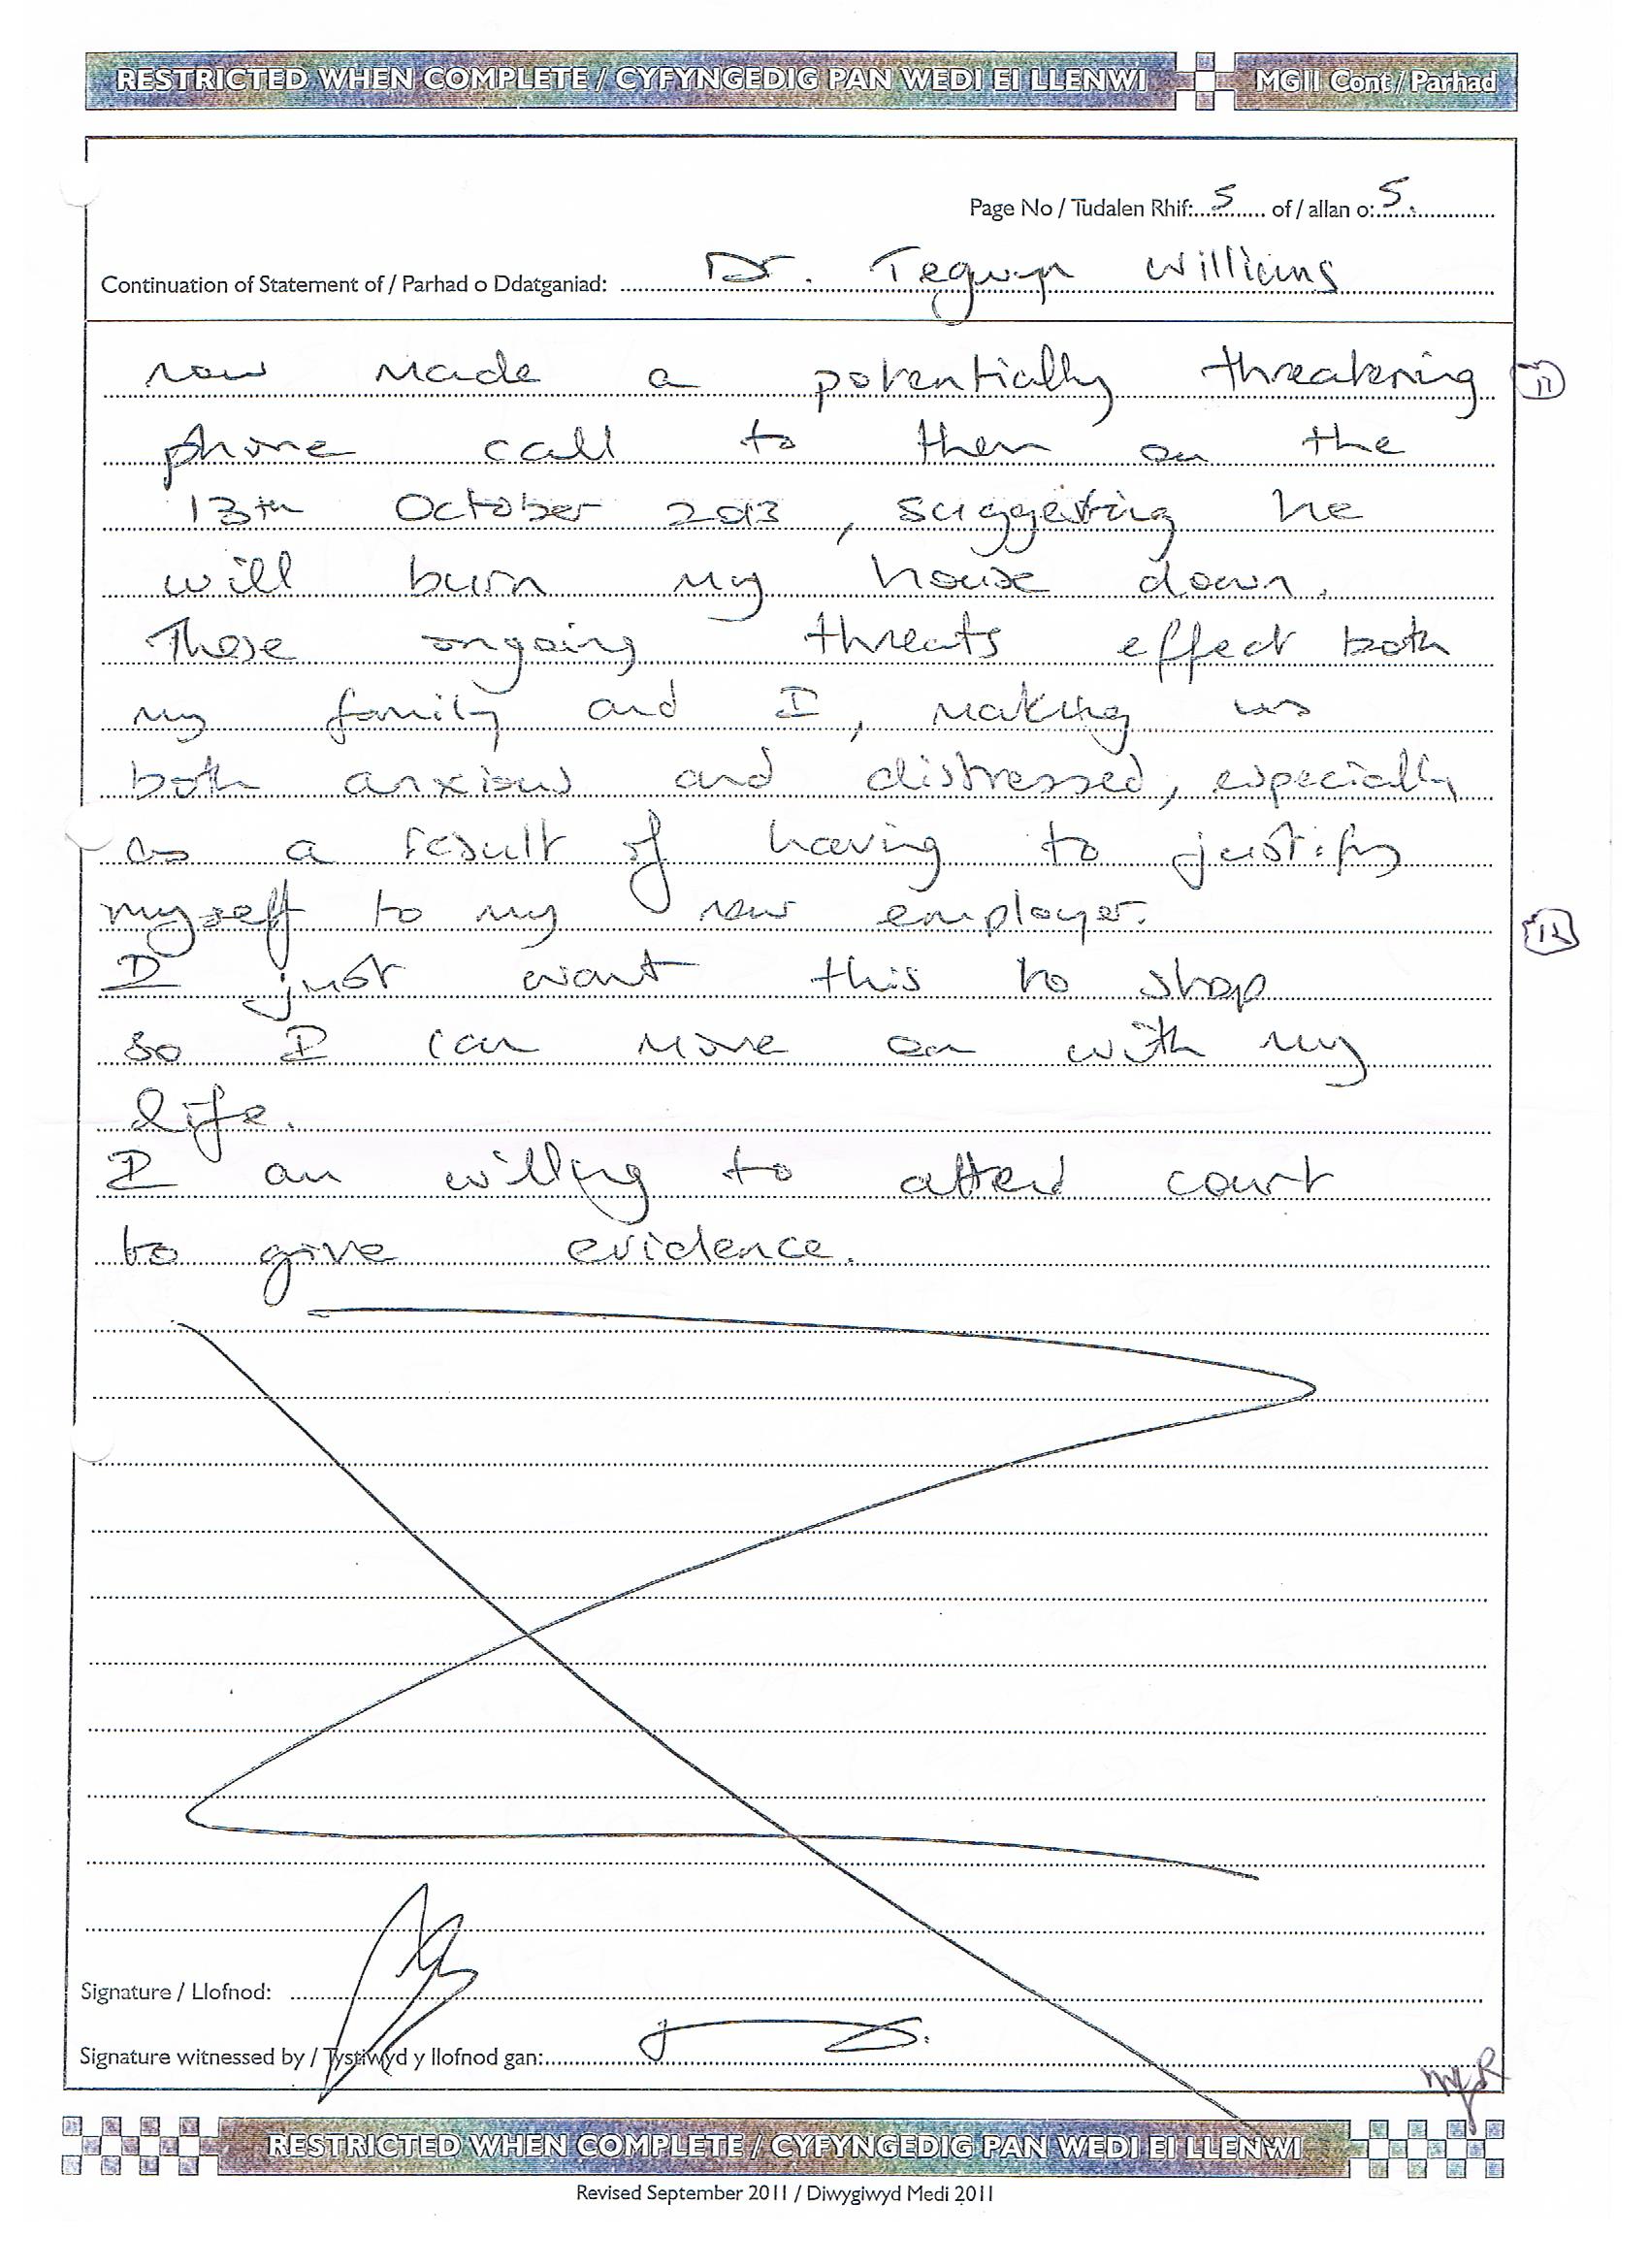 RESTRICTED WHEN COMPLETE / CYFYNGEDIG PAN WEDI EI LLENWI
MG11 Cont / Parhad
Page No / Tudalen Rhif: 5 of / allan o: 5.
Continuation of Statement of / Parhad o Ddatganiad: Dr. Tegwyn Williams
now made a potentially threatening
11
phone call to them on the
13th October 2013, suggesting he
will burn my house down.
These ongoing threats effect both
my family and I, making us
both anxious and distressed, especially
as a result of having to justify
myself to my new employer.
12
I just want this to stop
so I can move on with my
life.
I am willing to attend court
to give evidence.
Signature / Llofnod:
Signature witnessed by / Tystiwyd y llofnod gan:
RESTRICTED WHEN COMPLETE / CYFYNGEDIG PAN WEDI EI LLENWI
Revised September 2011 / Diwygiwyd Medi 2011